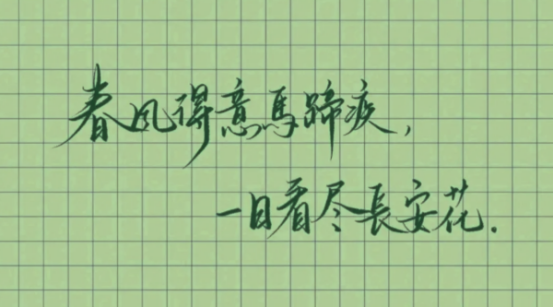 春风得意馬蹄疾,
一日看尽長安花.